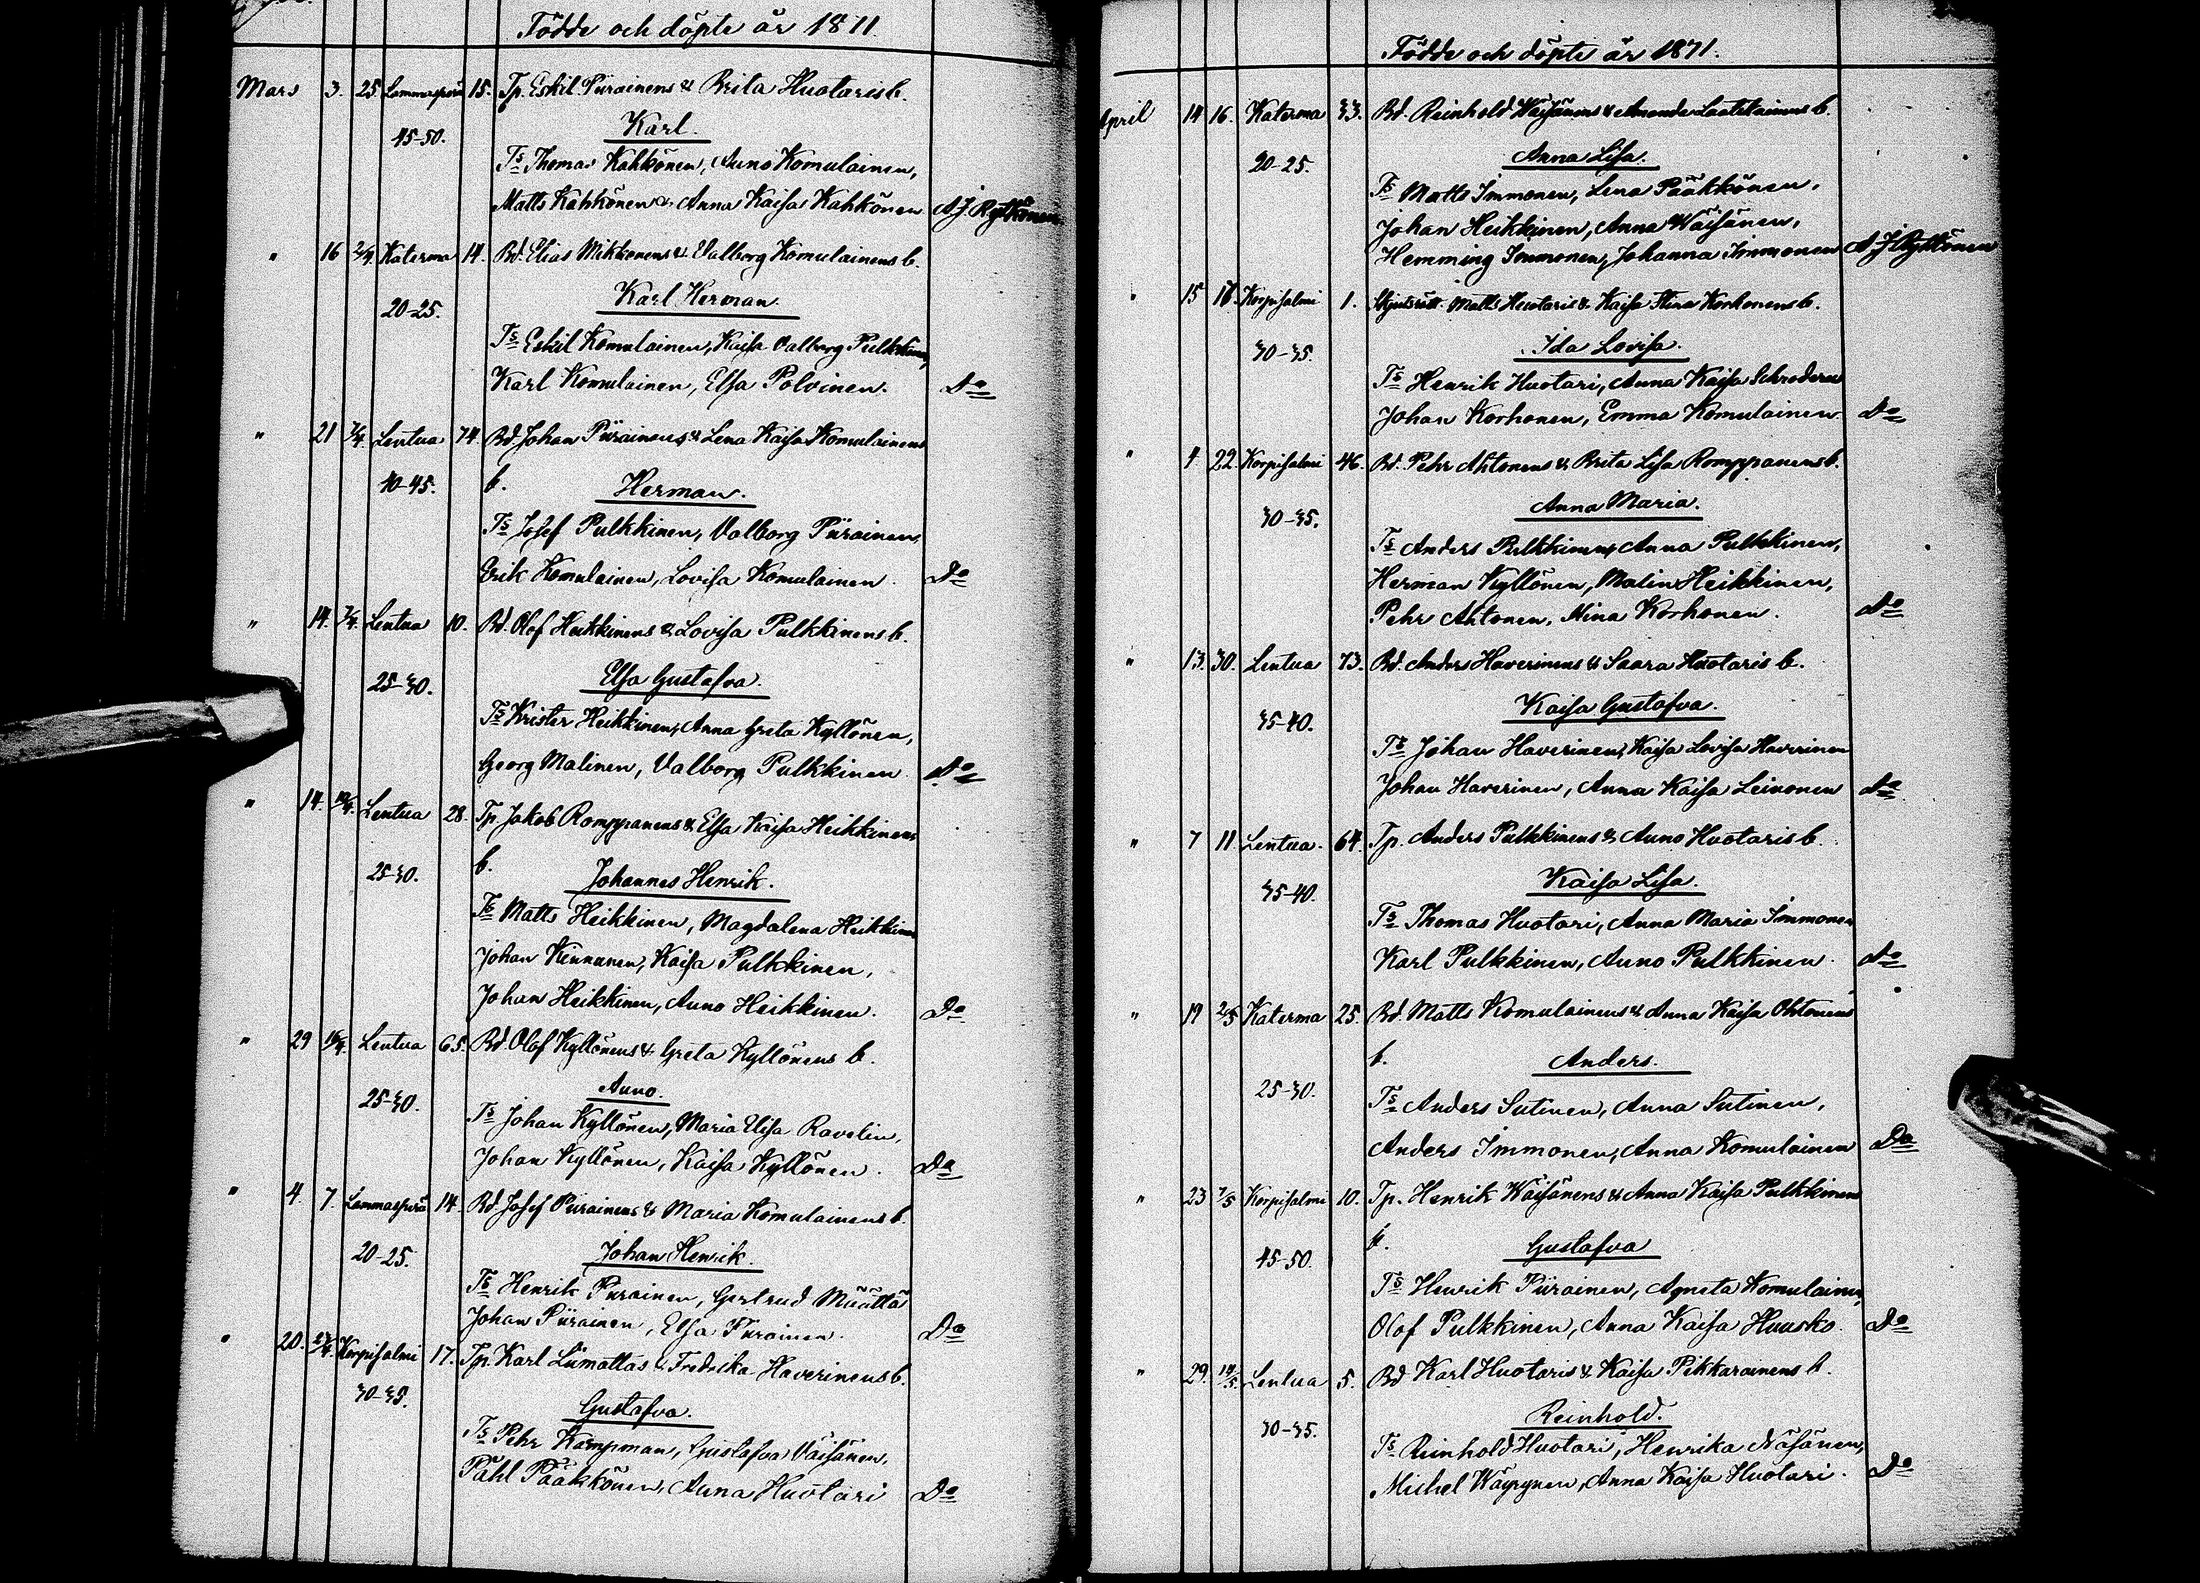 Födde och döpte år 1871.
Mars 3. 25 Lammasperä 15. Tp. Eskil Piirainens & Brita Huotaris b.
Karl.
45-50.
Ts Thomas Kähkönen, Auno Komulainen,
Matts Kähkönen & Anna Kaisa Kähkönen A. J. Kyllönen
" 16 2/4 Katerma 14. Bd. Elias Mikkonens & Valborg Komulainens b.
Karl Herman
20-25.
Ts Eskil Komulainen, Kaisa Valborg Pulkkinen,
Karl Komulainen, Elsa Polvinen. Do
" 21 7/4 Lentua 74. Bd. Johan Piirainens & Lena Kaisa Komulainens
40-45. b. Herman.
Ts Josef Pulkkinen, Valborg Piirainen,
Erik Komulainen, Lovisa Komulainen. Do
" 14. 7/4 Lentua 10. Bd. Olof Heikkinens & Lovisa Pulkkinens b.
25-30. Elsa Gustafva.
Ts Krister Heikkinen, Anna Greta Kyllönen,
Georg Malinen, Valborg Pulkkinen Do
" 14. 10/4 Lentua 28. Tp. Jakob Romppanens & Elsa Kaisa Heikkinens
25-30. b. Johannes Henrik.
Ts Matts Heikkinen, Magdalena Heikkinen
Johan Kinnunen, Kaisa Pulkkinen,
Johan Heikkinen, Auno Heikkinen. Do
" 29 Lentua 65. Bd. Olof Kyllönens & Greta Kyllönens b.
Auno.
25-30.
Ts Johan Kyllönen, Maria Elisa Ravelin,
Johan Kyllönen, Kaisa Kyllönen. Do
" 4. 7. Lammasperä 14. Bd. Josef Piirainens & Maria Komulainens b.
20-25. Johan Henrik.
Ts Henrik Piirainen, Gertrud Määttä
Johan Piirainen, Elsa Piirainen. Do
" 20. 23/4 Korpisalmi 17. Tp. Karl Liimattas & Fredrika Haverinens b.
30-35. Gustafva.
Ts Pehr Kampman, Gustafva Väisänen,
Påhl Pääkkönen, Anna Huotari Do
Födde och döpte år 1871.
April 14 16. Katerma 33. Bd. Reinhold Wäisänens & Amanda Laatikainens b.
20-25. Anna Lisa.
Ts Matts Immonen, Lena Pääkkönen,
Johan Heikkinen, Anna Wäisänen,
Hemming Immonen, Johanna Immonen A J Kyllönen
" 15 Korpisalmi 1. Matts Huotaris & Kaisa Stina Korhonens b.
30-35. Ida Lovisa.
Ts Henrik Huotari, Anna Kaisa Schroderus
Johan Korhonen, Emma Komulainen Do
" 4 22 Korpisalmi 46. Bd. Pehr Ahtonens & Brita Lisa Romppanens b.
30-35. Anna Maria.
Ts Anders Pulkkinen, Anna Pulkkinen,
Herman Kyllönen, Malin Heikkinen,
Pehr Ahtonen, Mina Korhonen. Do
" 13. 30. Lentua 73. Bd. Anders Haverinens & Saara Huotaris b.
35-40. Kaisa Gustafva.
Ts Johan Haverinen, Kaisa Lovisa Haverinen
Johan Haverinen, Anna Kaisa Leinonen Do
" 7 11. Lentua. 64. Tp. Anders Pulkkinens & Auno Huotaris b.
35-40. Kaisa Lisa.
Ts Thomas Huotari, Anna Maria Immonen
Karl Pulkkinen, Auno Pulkkinen. Do
" 19 2/5 Katerma 25. Bd. Matts Komulainens & Anna Kaisa Ohtonens
b. Anders.
25-30.
Ts Anders Sutinen, Anna Sutinen,
Anders Immonen, Anna Komulainen Do
" 23 7/5 Korpisalmi 10. Tp. Henrik Wäisänens & Anna Kaisa Pulkkinens
45-50. b. Gustafva
Ts Henrik Piirainen, Agneta Komulainen,
Olof Pulkkinen, Anna Kaisa Huusko. Do
" 29. 14/5 Lentua 5. Bd Karl Huotaris & Kaisa Pikkarainens b.
30-35. Reinhold.
Ts Reinhold Huotari, Henrika Näsänen,
Michel Wäyrynen, Anna Kaisa Huotari. Do